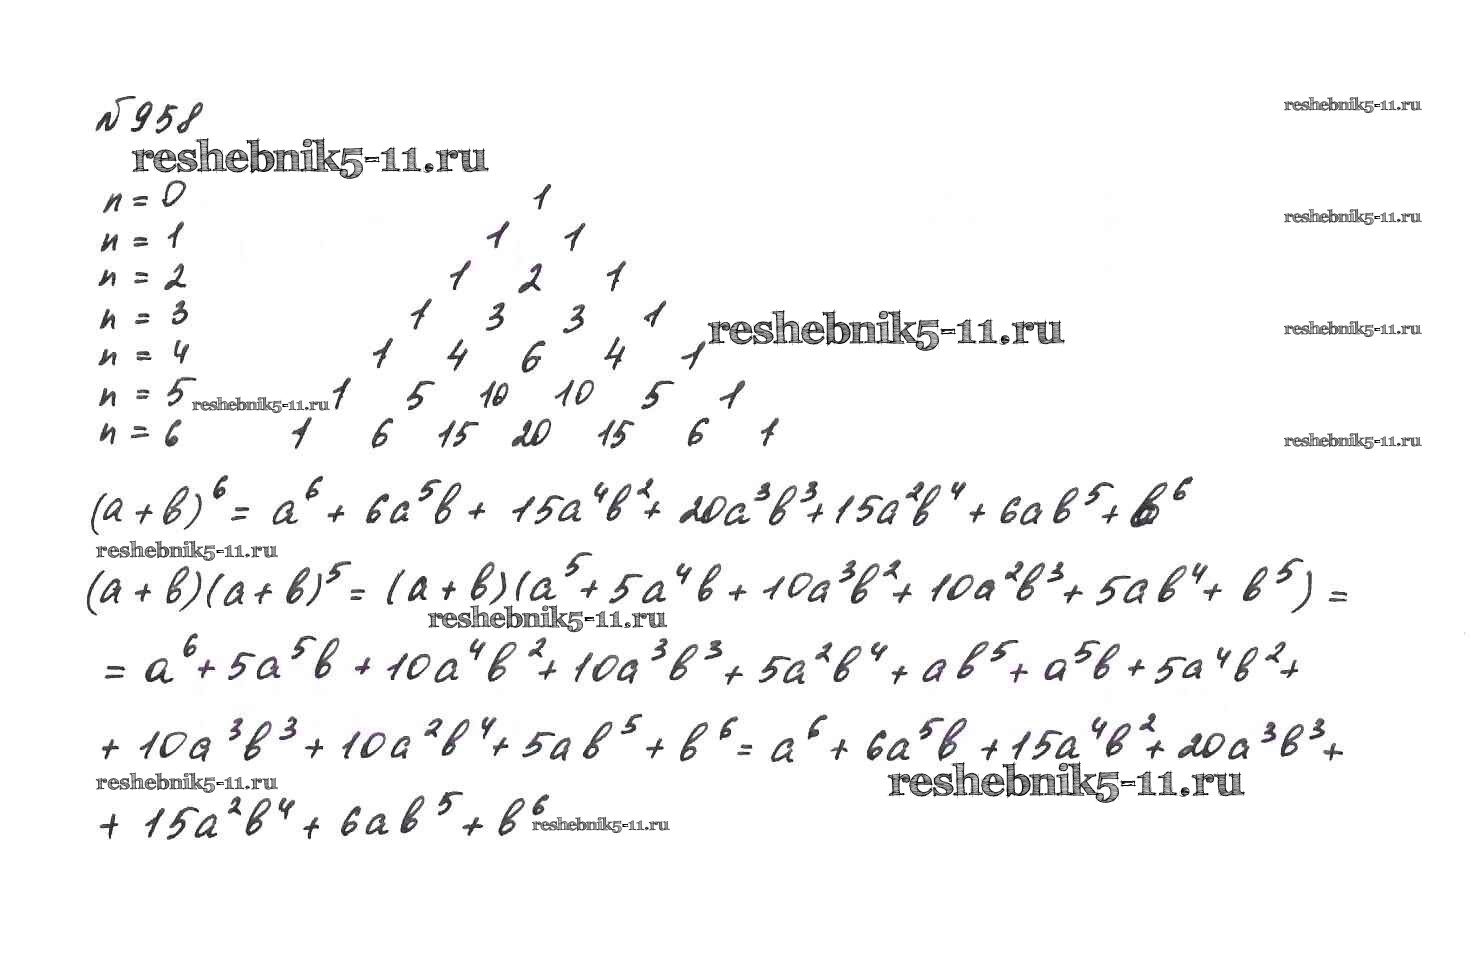 №958
reshebnik5-11.ru
reshebnik5-11.ru
n = 0 1
reshebnik5-11.ru
n = 1 1 1
n = 2 1 2 1
n = 3 1 3 3 1
reshebnik5-11.ru
reshebnik5-11.ru
n = 4 1 4 6 4 1
n = 5 reshebnik5-11.ru 1 5 10 10 5 1
n = 6 1 6 15 20 15 6 1
reshebnik5-11.ru
(a + b)⁶ = a⁶ + 6a⁵b + 15a⁴b² + 20a³b³ + 15a²b⁴ + 6ab⁵ + b⁶
reshebnik5-11.ru
(a + b)(a + b)⁵ = (a + b)(a⁵ + 5a⁴b + 10a³b² + 10a²b³ + 5ab⁴ + b⁵) =
reshebnik5-11.ru
= a⁶ + 5a⁵b + 10a⁴b² + 10a³b³ + 5a²b⁴ + ab⁵ + a⁵b + 5a⁴b² +
+ 10a³b³ + 10a²b⁴ + 5ab⁵ + b⁶ = a⁶ + 6a⁵b + 15a⁴b² + 20a³b³ +
reshebnik5-11.ru
reshebnik5-11.ru
+ 15a²b⁴ + 6ab⁵ + b⁶ reshebnik5-11.ru